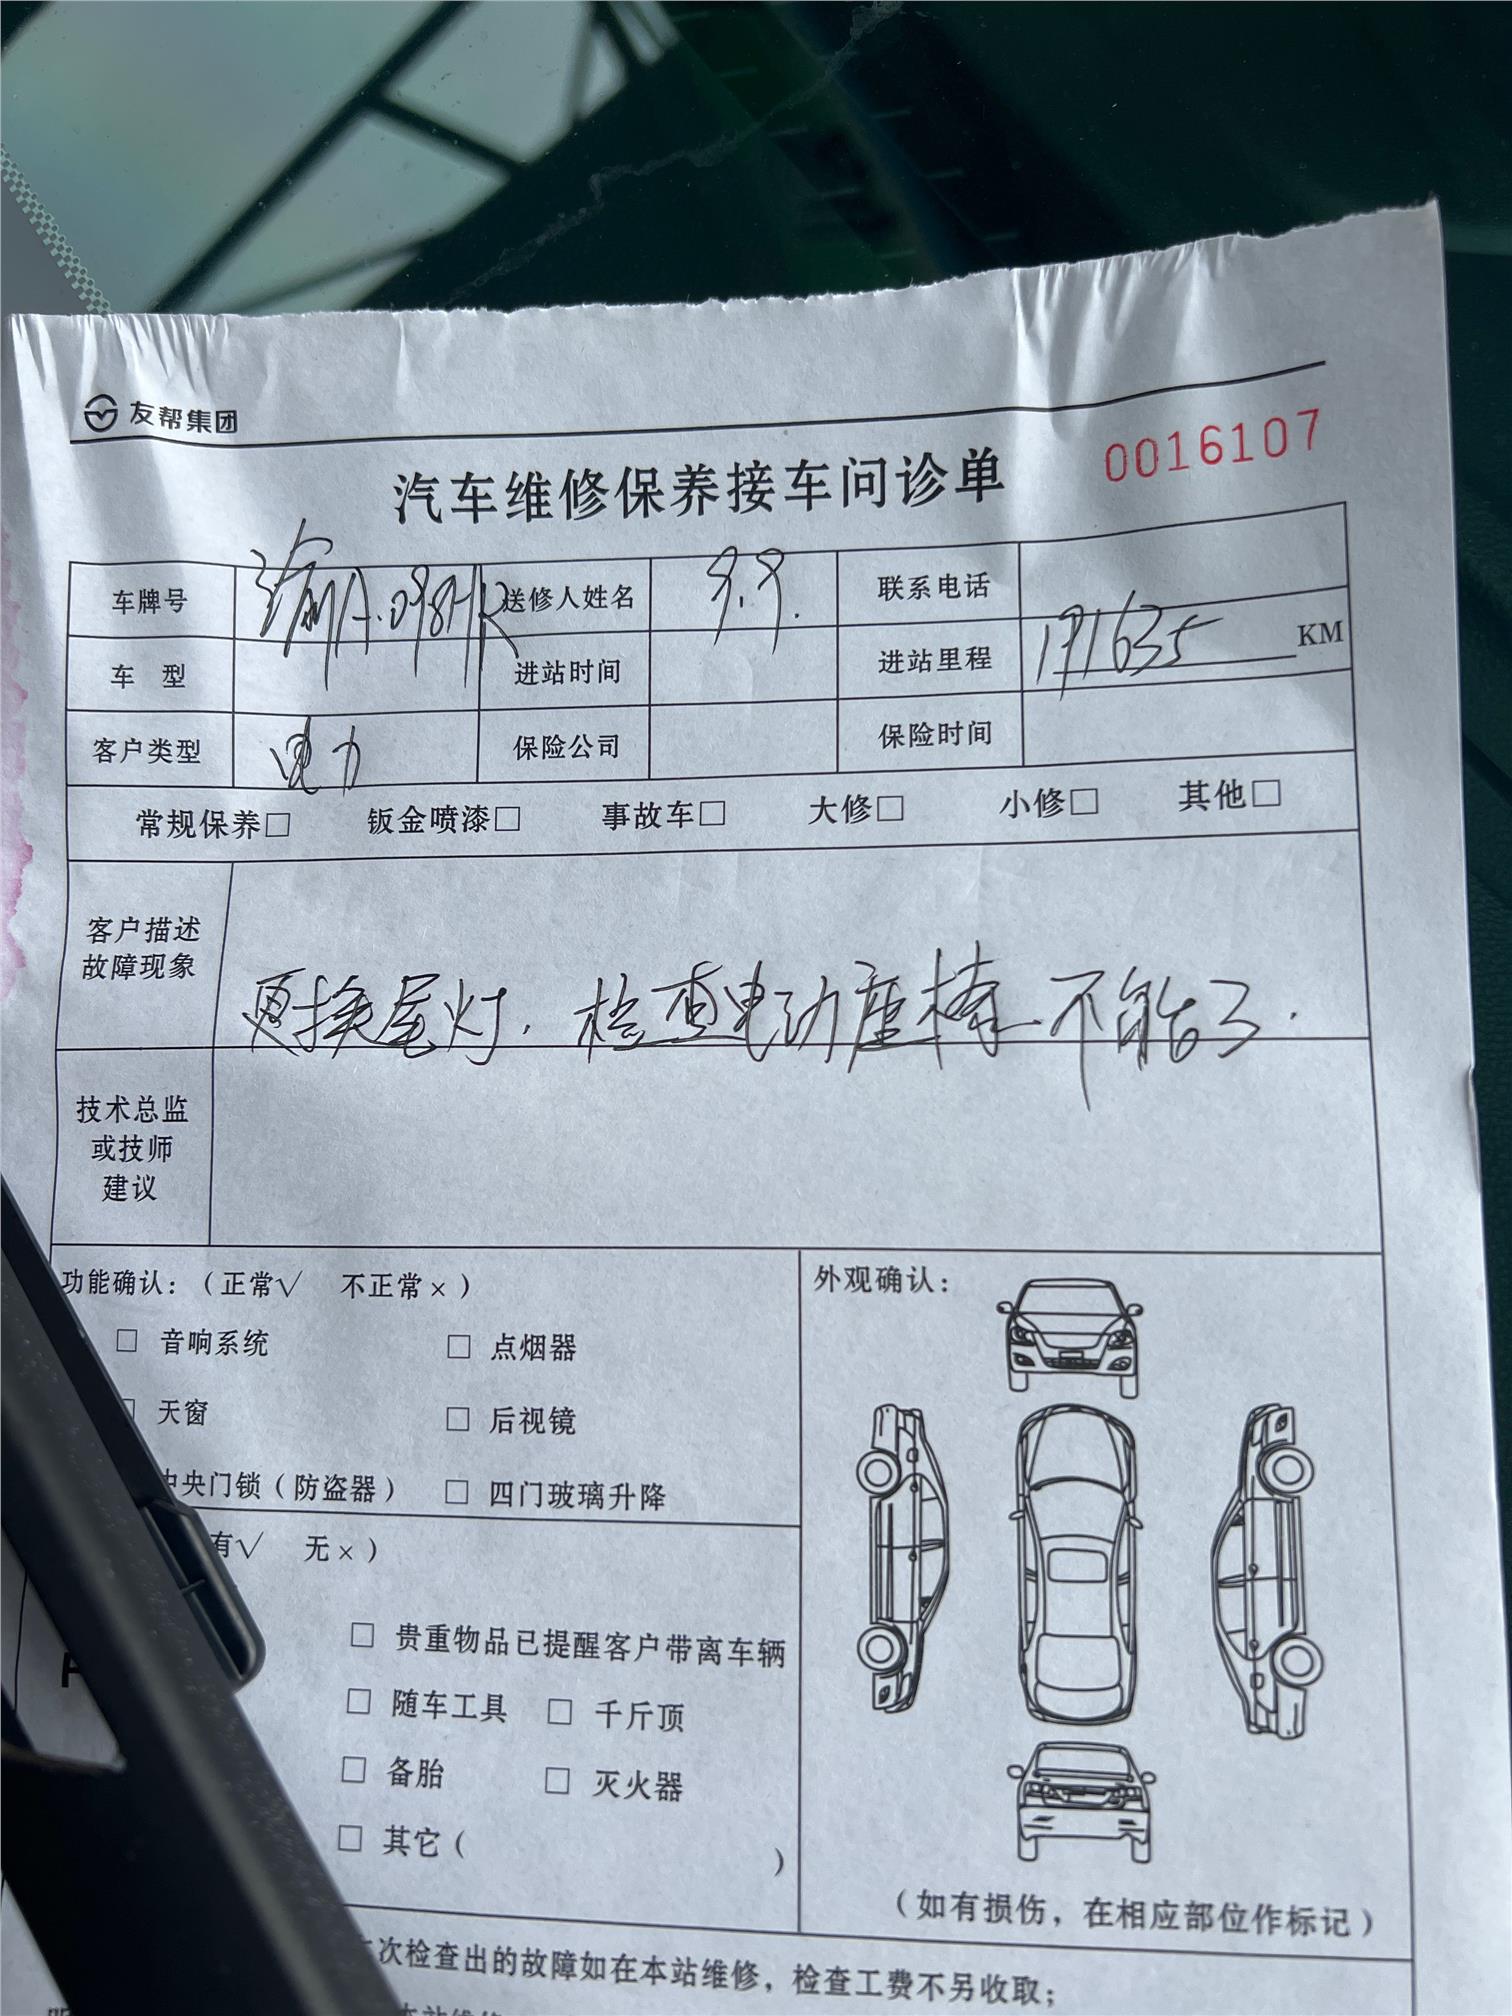 友帮集团
0016107
汽车维修保养接车问诊单
车牌号 渝A.098HK 送修人姓名 9.9. 联系电话
车 型 进站时间 进站里程 171635 KM
客户类型 电力 保险公司 保险时间
常规保养□ 钣金喷漆□ 事故车□ 大修□ 小修□ 其他□
客户描述
故障现象
更换尾灯. 检查电动座椅 不能了.
技术总监
或技师
建议
功能确认：（正常√ 不正常×）
□ 音响系统 □ 点烟器
□ 天窗 □ 后视镜
中央门锁（防盗器） □ 四门玻璃升降
有√ 无×）
□ 贵重物品已提醒客户带离车辆
□ 随车工具 □ 千斤顶
□ 备胎 □ 灭火器
□ 其它（ ）
外观确认：
（如有损伤，在相应部位作标记）
次检查出的故障如在本站维修，检查工费不另收取；